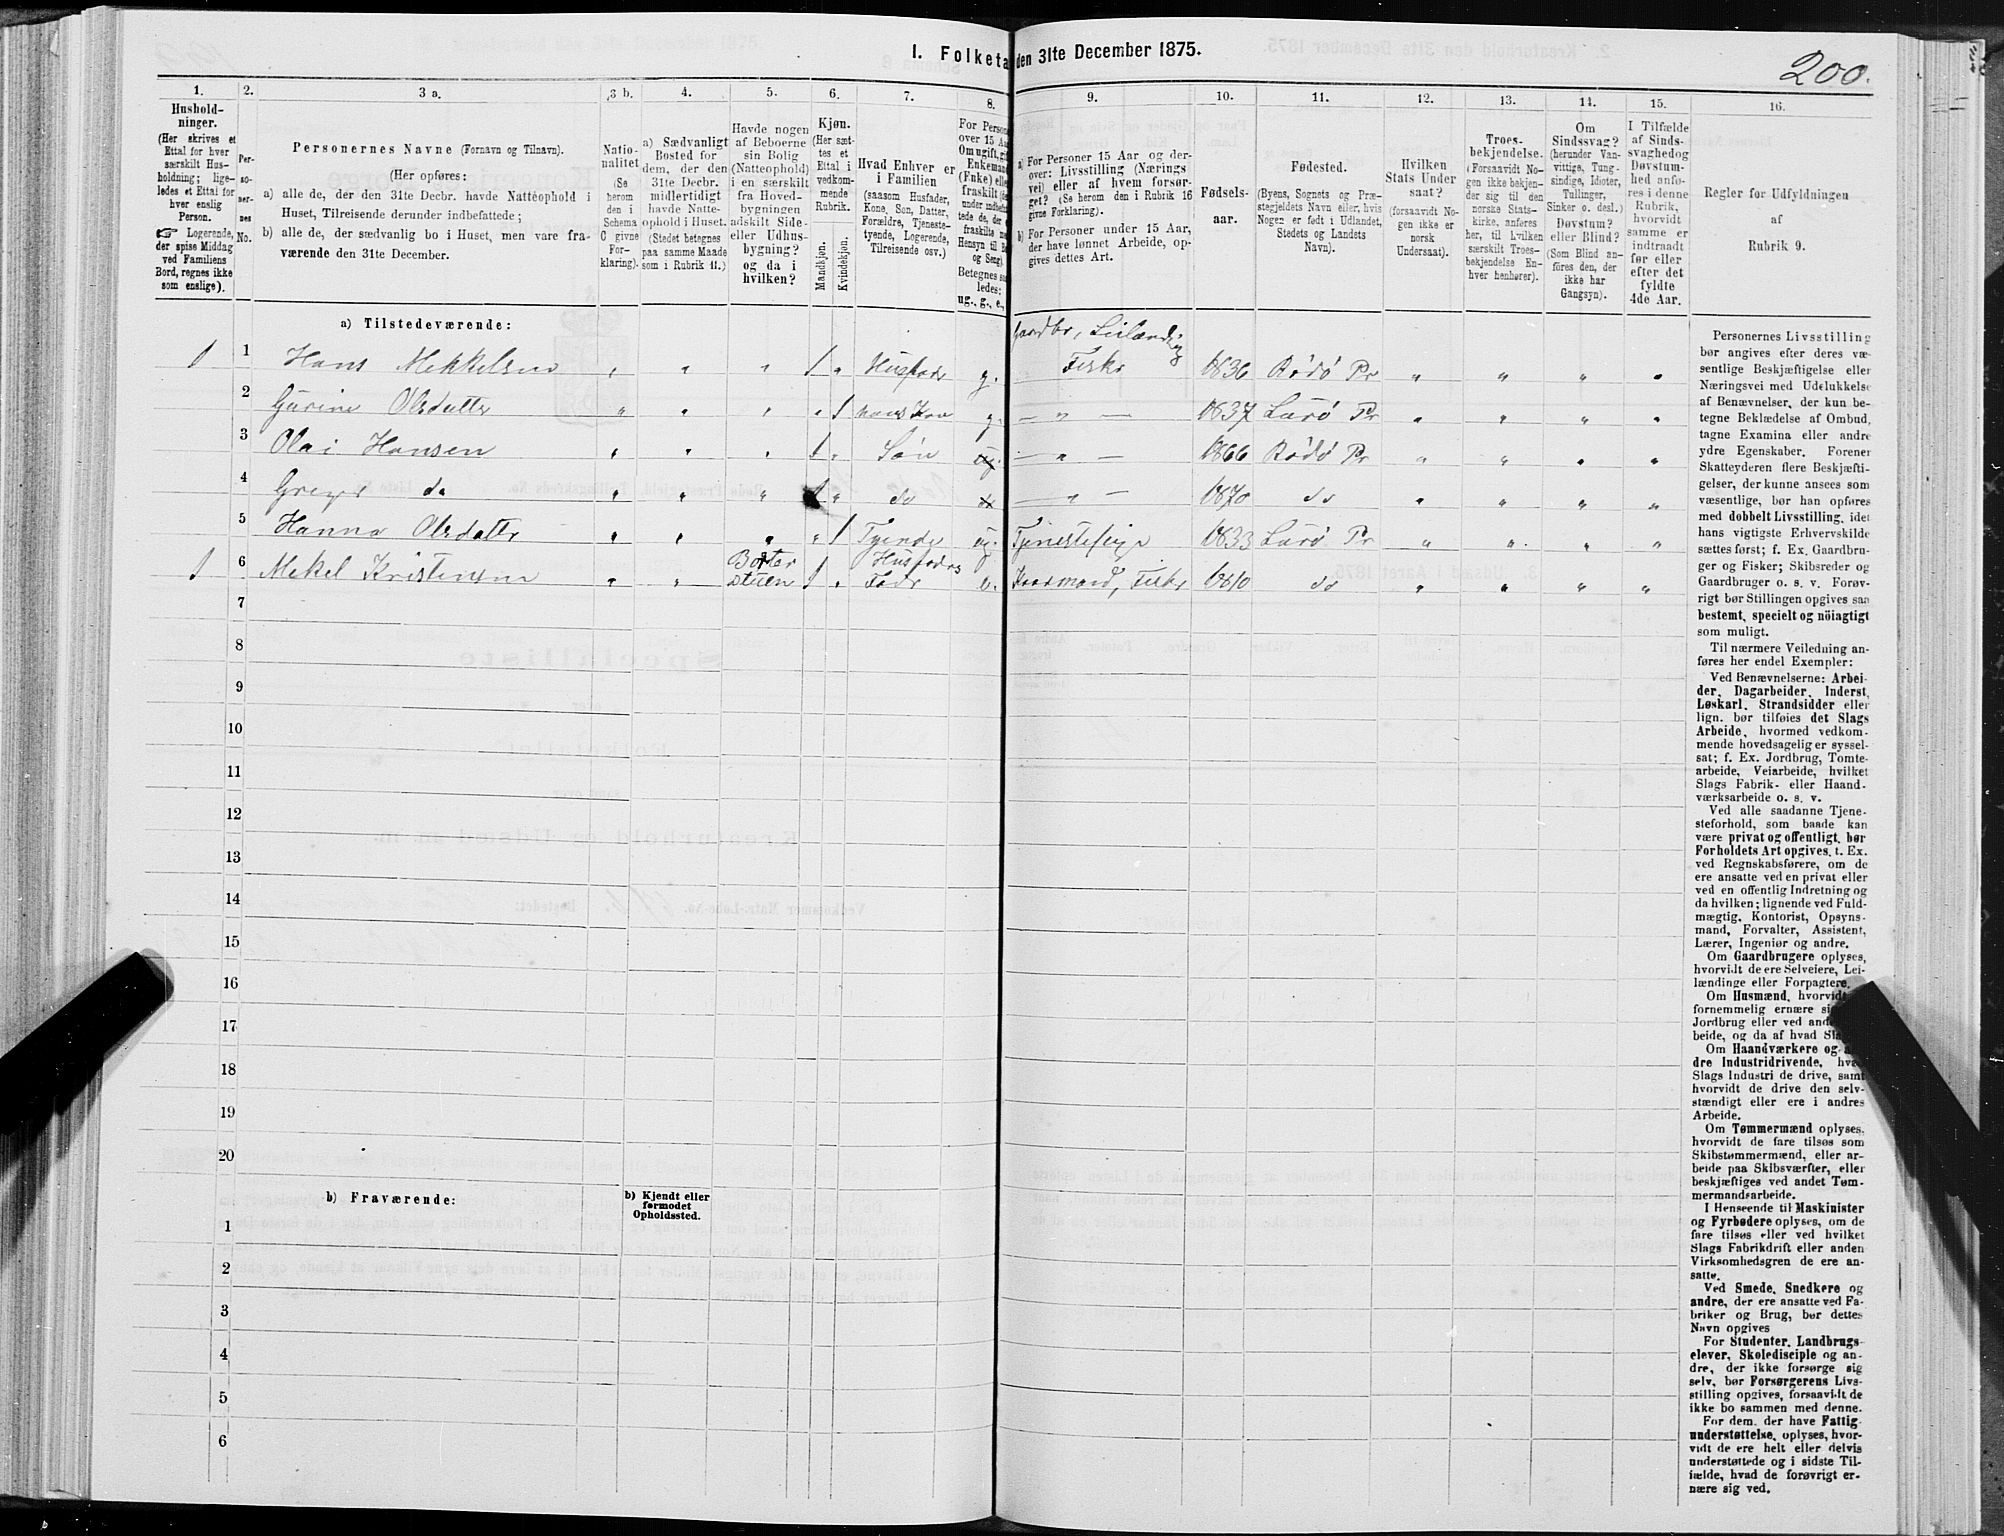 I. Folketa den 31te December 1875.
200.
1.
2.
3 a.
3 b.
4.
5.
6.
7.
8.
9.
10.
11.
12.
13.
14.
15.
16.
Hushold-
ninger.
(Her skrives et
Ettal for hver
særskilt Hus-
holdning; lige-
ledes et Ettal for
hver enslig
Person.
☞ Logerende,
der spise Middag
ved Familiens
Bord, regnes ikke
som enslige).
Per-
so-
ner-
nes
No.
Personernes Navne (Fornavn og Tilnavn).
(Her opføres:
a) alle de, der den 31te Decbr. havde Natteophold i
Huset, Tilreisende derunder indbefattede;
b) alle de, der sædvanlig bo i Huset, men vare fra-
værende den 31te December.
Natio-
nalitet
(Se
herom
den i
Schema
C givne
For-
klaring).
a) Sædvanligt
Bosted for
dem, der den
31te Decbr.
midlertidigt
havde Natte-
ophold i Huset.
(Stedet betegnes
paa samme Maade
som i Rubrik 11.)
Havde nogen
af Beboerne
sin Bolig
(Natteophold)
i en særskilt
fra Hoved-
bygningen
adskilt Side-
eller Udhus-
bygning?
og da i
hvilken?
Kjøn.
(Her sæt-
tes et
Ettal i
vedkom-
mende
Rubrik.
Mandkjøn.
Kvindekjøn.
Hvad Enhver er
i Familien
(saasom Husfader,
Kone, Søn, Datter,
Forældre, Tjeneste-
tyende, Logerende,
Tilreisende osv.)
For Person
over 15 Aar
Om ugift, gif
Enkemand
(Enke) elle
fraskilt
Betegnes saa
ledes:
ug., g., e.,
a) For Personer 15 Aar og der-
over: Livsstilling (Nærings
vei) eller af hvem forsør-
get? (Se herom den i Rubrik 16
givne Forklaring).
b) For Personer under 15 Aar,
der have lønnet Arbeide, op-
gives dettes Art.
Fødsels-
aar.
Fødested.
(Byens, Sognets og Præ-
stegjeldets Navn eller, hvis
Nogen er født i Udlandet,
Stedets og Landets
Navn).
Hvilken
Stats Under
saat?
(forsaavidt No-
gen ikke er
norsk
Undersaat).
Troes-
bekjendelse.
(Forsaavidt No-
gen ikke bekjen-
der sig til den
norske Stats-
kirke, anføres
her, til hvilken
særskilt Troes-
bekjendelse En-
hver henhører).
Om
Sindssvag?
(herunder Van-
vittige, Tung-
sindige, Idioter,
Tullinger,
Sinker o. desl.)
Døvstum?
eller Blind?
(Som Blind an-
føres den, der
ikke har
Gangsyn).
I Tilfælde
af Sinds-
svaghed og
Døvstum-
hed anfø-
res i denne
Rubrik,
hvorvidt
samme er
indtraadt
før eller
efter det
fyldte
4de Aar.
Regler for Udfyldningen
af
Rubrik 9.
a) Tilstedeværende:
Gaardbr, Leilænding
1 1 Hans Mekkelsen " " " 1 " Husfadr g. Fiskr 1836 Rødø Pr " " " "
2 Gurine Olsdattr " " " " 1 hans Kone g. — " — 1837 Lurø Pr " " " "
3 Olai Hansen " " " 1 " Søn ug. — " — 1866 Rødø Pr " " " "
4 Greger do " " " 1 " do — " — 1870 do " " " "
5 Hanna Olsdattr " " " " 1 Tyende ug. Tjenestepige 1833 Lurø Pr " " " "
1 6 Mekel Kristensen " " Borterstuen 1 " Husfaders Fadr e. Kaarmand, Fiskr 1810 do " " " "
7
8
9
10
11
12
13
14
15
16
17
18
19
20
b) Fraværende:
b) Kjendt eller
formodet
Opholdssted.
1
2
3
4
5
6
Personernes Livsstilling
bør angives efter deres væ-
sentlige Beskjæftigelse eller
Næringsvei med Udelukkelse
af Benævnelser, der kun be-
tegne Beklædelse af Ombud,
tagne Examina eller andre
ydre Egenskaber. Forener
Skatteyderen flere Beskjæfti-
gelser, der kunne ansees som
væsentlige, bør han opføres
med dobbelt Livsstilling, idet
hans vigtigste Erhvervskilde
sættes først; f. Ex. Gaardbru-
ger og Fisker; Skibsreder og
Gaardbruger o. s. v. Forøv-
rigt bør Stillingen opgives saa
bestemt, specielt og nöiagtigt
som muligt.
Til nærmere Veiledning an-
føres her endel Exempler:
Ved Benævnelserne: Arbei-
der, Dagarbeider, Inderst,
Løskarl, Strandsidder eller
lign. bør tilføies det Slags
Arbeide, hvormed vedkom-
mende hovedsagelig er syssel-
sat; f. Ex. Jordbrug, Tomte-
arbeide, Veiarbeide, hvilket
Slags Fabrik- eller Haand-
værksarbeide o. s. v.
Ved alle saadanne Tjene-
steforhold, som baade kan
være privat og offentligt, bør
Forholdets Art opgives, t. Ex.
ved Regnskabsførere, om de
ere ansatte ved en privat eller
ved en offentlig Indretning og
da hvilken; lignende ved Fuld-
mægtig, Kontorist, Opsyns-
mand, Forvalter, Assistent,
Lærer, Ingeniør og andre.
Om Gaardbrugere oplyses,
hvorvidt de ere Selveiere, Lei-
lændinge eller Forpagtere.
Om Husmænd, hvorvidt
fornemmelig ernære si
Jordbrug eller ved and
beide, og da af hvad Sla
Om Haandværkere og
dre Industridrivende, hva
Slags Industri de drive, samt
hvorvidt de drive den selv-
stændigt eller ere i andres
Arbeide.
Om Tømmermænd oplyses,
hvorvidt de fare tilsøs som
Skibstømmermænd, eller ar-
beide paa Skibsværfter, eller
beskjæftiges ved andet Tøm-
mermandsarbeide.
I Henseende til Maskinister
og Fyrbødere oplyses, om de
fare tilsøs eller ved hvilket
Slags Fabrikdrift eller anden
Virksomhedsgren de ere an-
satte.
Ved Smede, Snedkere og
andre, der ere ansatte ved Fa-
briker og Brug, bør dettes
Navn opgives
For Studenter, Landbrugs-
elever, Skoledisciple og an-
dre, der ikke forsørge sig
selv, bør Forsørgerens Livs-
stilling opgives, forsaavidt de
ikke bo sammen med denne.
For dem, der have Fattig-
understøttelse, oplyses, hvor-
vidt de ere helt eller delvis
understøttede og i sidste Til-
fælde, hvad de forøvrigt er-
nære sig ved.